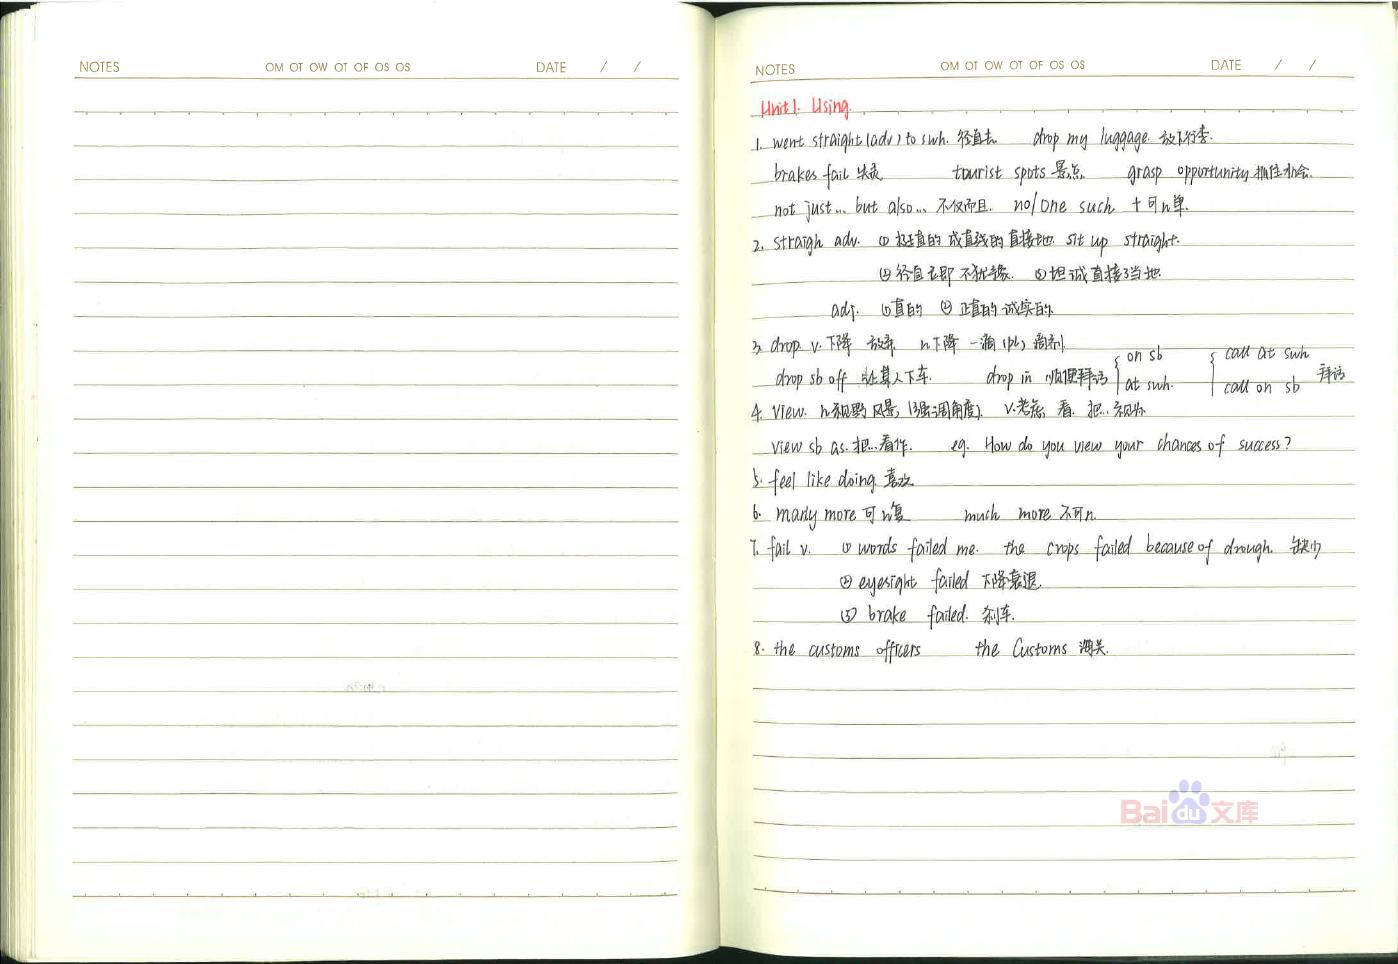 NOTES OM OT OW OT OF OS OS DATE / /
NOTES OM OT OW OT OF OS OS DATE / /
Unit 1. Using.
1. went straight (adv) to swh. 径直去 drop my luggage 放下行李.
brakes fail 失灵 tourist spots 景点. grasp opportunity 抓住机会.
not just... but also... 不仅而且. no/one such + 可n单.
2. straigh adv. ① 挺直的 成直线的 直接地. sit up straight.
② 径直 立即 不犹豫. ③ 坦诚直接了当地
adj. ① 直的 ② 正直的 诚实的
3. drop v. 下降 放弃 n 下降 一滴 (pl) 滴剂
on sb call at swh
drop sb off 让某人下车. drop in 顺便拜访 at swh. call on sb 拜访
4. view. n 视野 风景, (强调角度). v. 考虑 看. 把...视为
view sb as. 把...看作. eg. How do you view your chances of success?
5. feel like doing 喜欢
6. many more 可n复 much more 不可n.
7. fail v. ① words failed me. the crops failed because of drough. 缺少
② eyesight failed 下降衰退
③ brake failed. 刹车.
8. the customs officers the Customs 海关.
Baidu文库